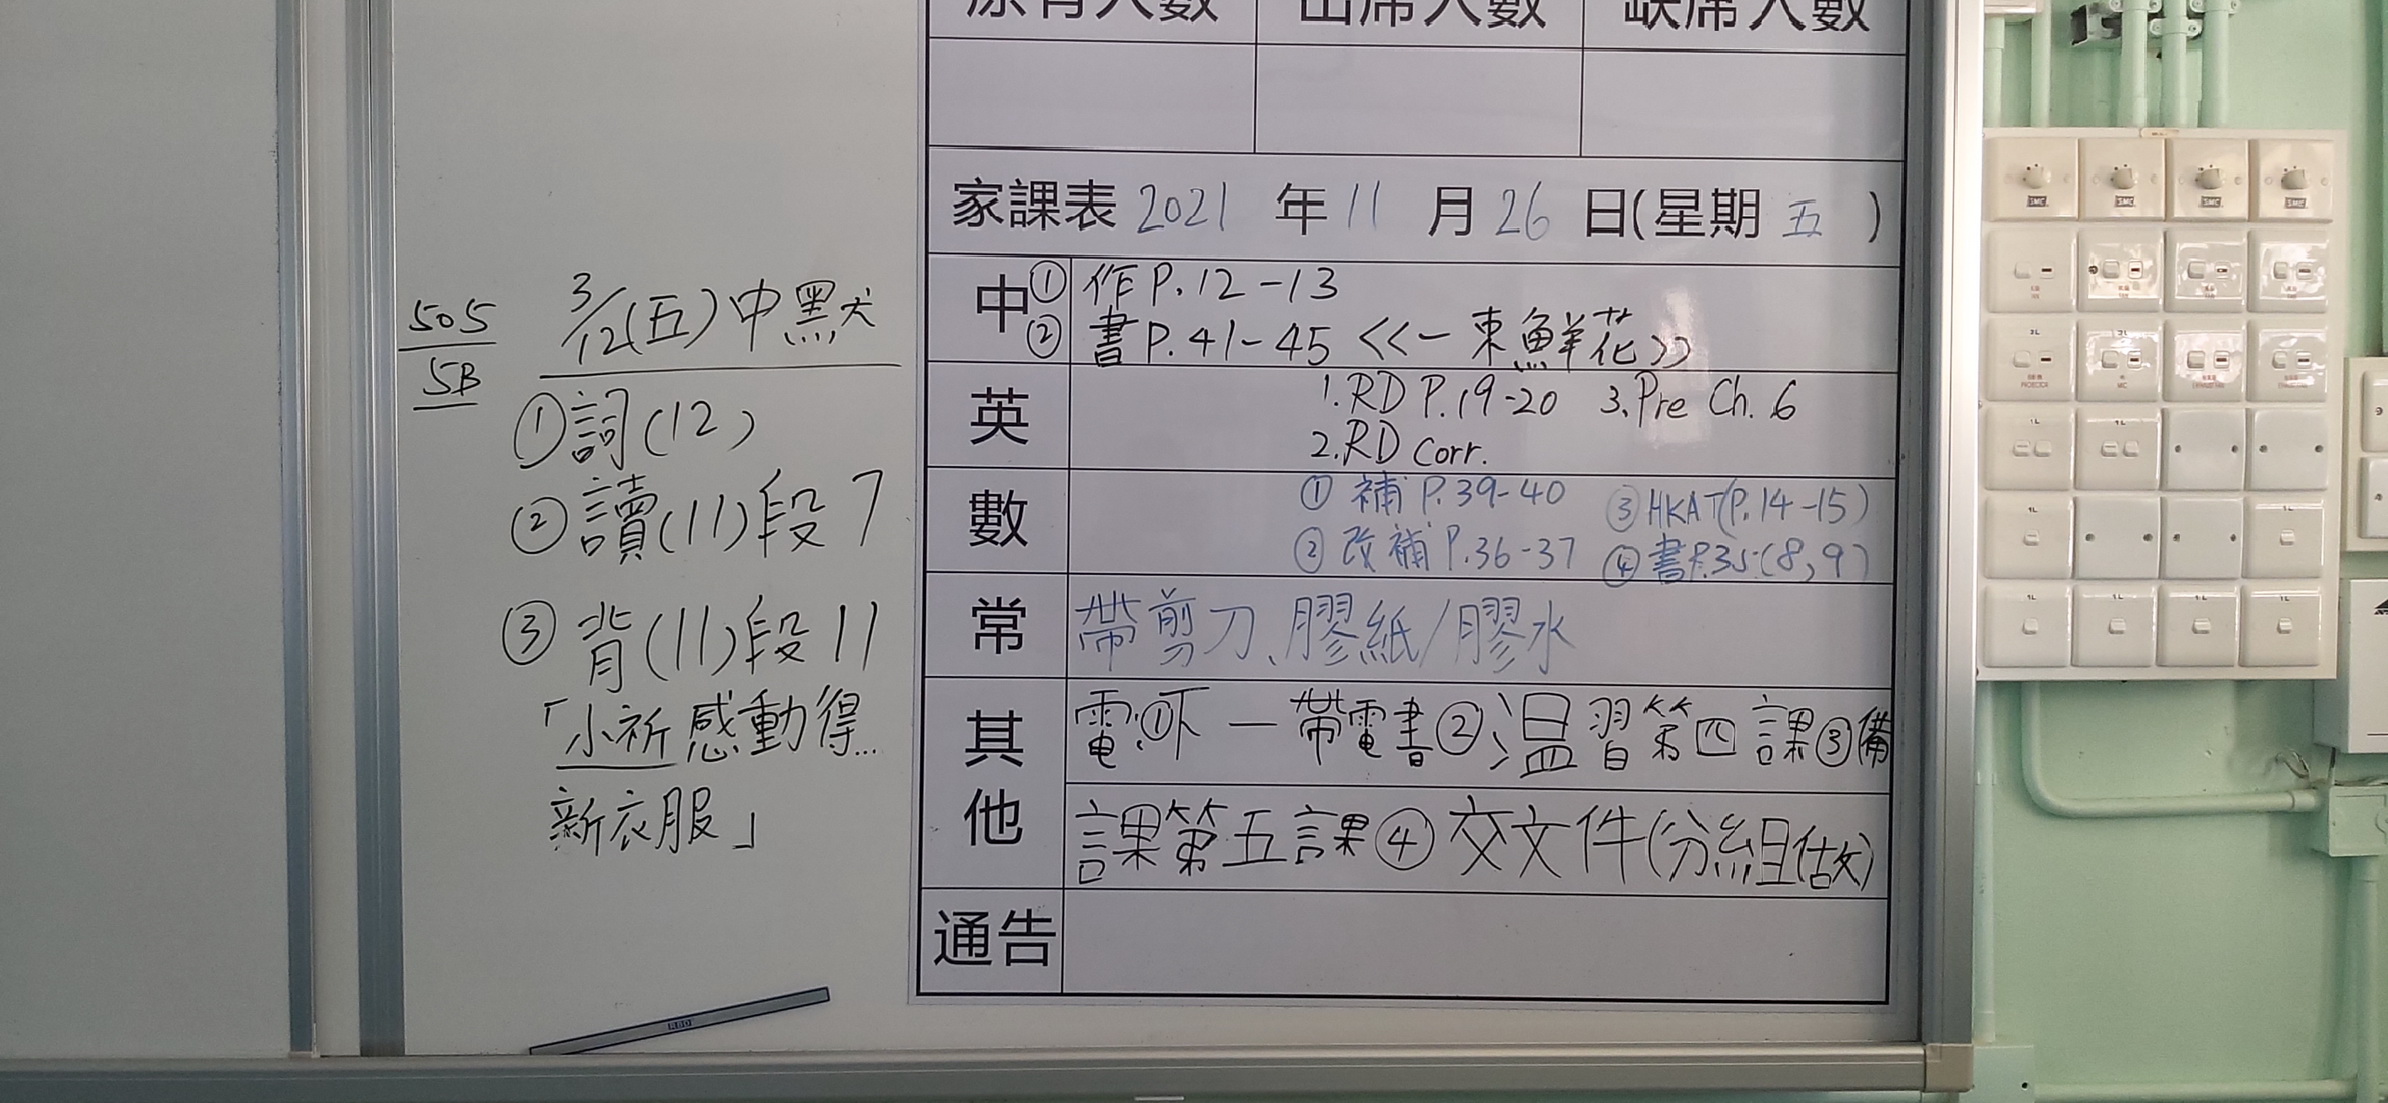 原有人數 出席人數 缺席人數
家課表 2021 年 11 月 26 日(星期 五 )
中 ① 作 P.12-13
② 書 P.41-45 <<一束鮮花>>
英 1.RD P.19-20 3.Pre Ch.6
2.RD Corr.
數 ① 補 P.39-40 ③ HKAT(P.14-15)
② 改補 P.36-37 ④ 書P.35(8,9)
常 帶剪刀、膠紙/膠水
其他 電:①下一帶電書②溫習第四課③備
課第五課④交文件(分組做)
通告
505
5B
3/12(五)中默
①詞(12)
②讀(11)段7
③背(11)段11
「小祈感動得...
新衣服」